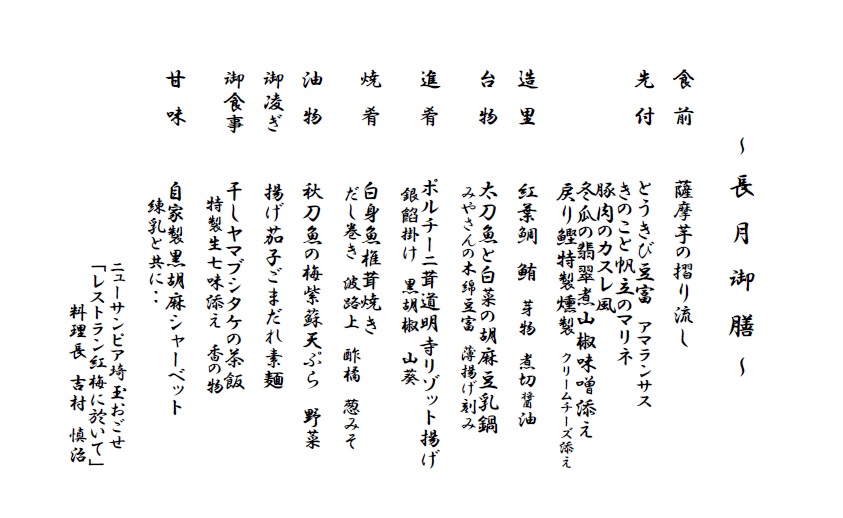 ～長月御膳～
食前　薩摩芋の摺り流し
先付　とうきび豆富　アマランサス
きのこと帆立のマリネ
豚肉のカスレ風
冬瓜の翡翠煮山椒味噌添え
戻り鰹特製燻製　クリームチーズ添え
造里　紅葉鯛　鮪　芽物　煮切醤油
台物　太刀魚と白菜の胡麻豆乳鍋
みやさんの木綿豆富　薄揚げ刻み
進肴　ポルチーニ茸道明寺リゾット揚げ
銀餡掛け　黒胡椒　山葵
焼肴　白身魚椎茸焼き
だし巻き　波路上　酢橘　葱みそ
油物　秋刀魚の梅紫蘇天ぷら　野菜
御凌ぎ　揚げ茄子ごまだれ素麺
御食事　干しヤマブシタケの茶飯
特製生七味添え　香の物
甘味　自家製黒胡麻シャーベット
練乳と共に・・
ニューサンピア埼玉おごせ
「レストラン紅梅に於いて」
料理長　吉村　慎治